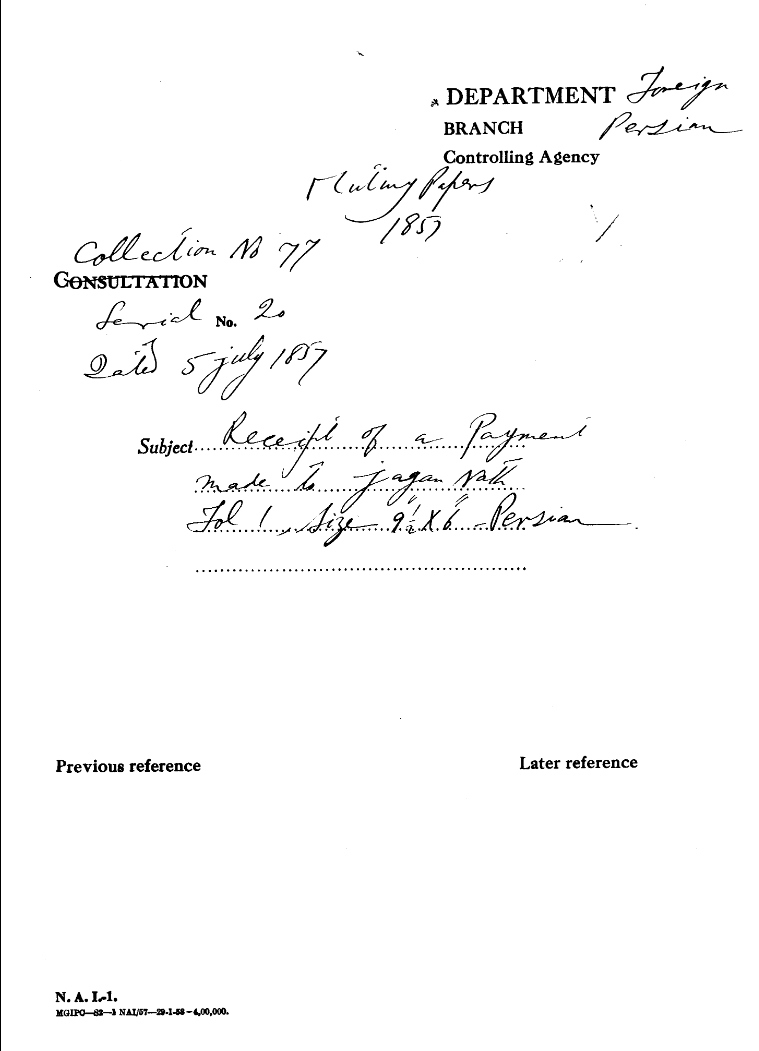 DEPARTMENT Foreign
BRANCH Persian
Controlling Agency
Mutiny Papers
1857
Collection No 77
CONSULTATION
Serial No. 20
Dated 5 july 1857
Subject Receipt of a Payment
made to Jagan Nath
Fol 1, Size 9½" X 6" - Persian
Previous reference
Later reference
N. A. I.-1.
MGIPC—S2—3 NAI/57—29-1-58—4,00,000.